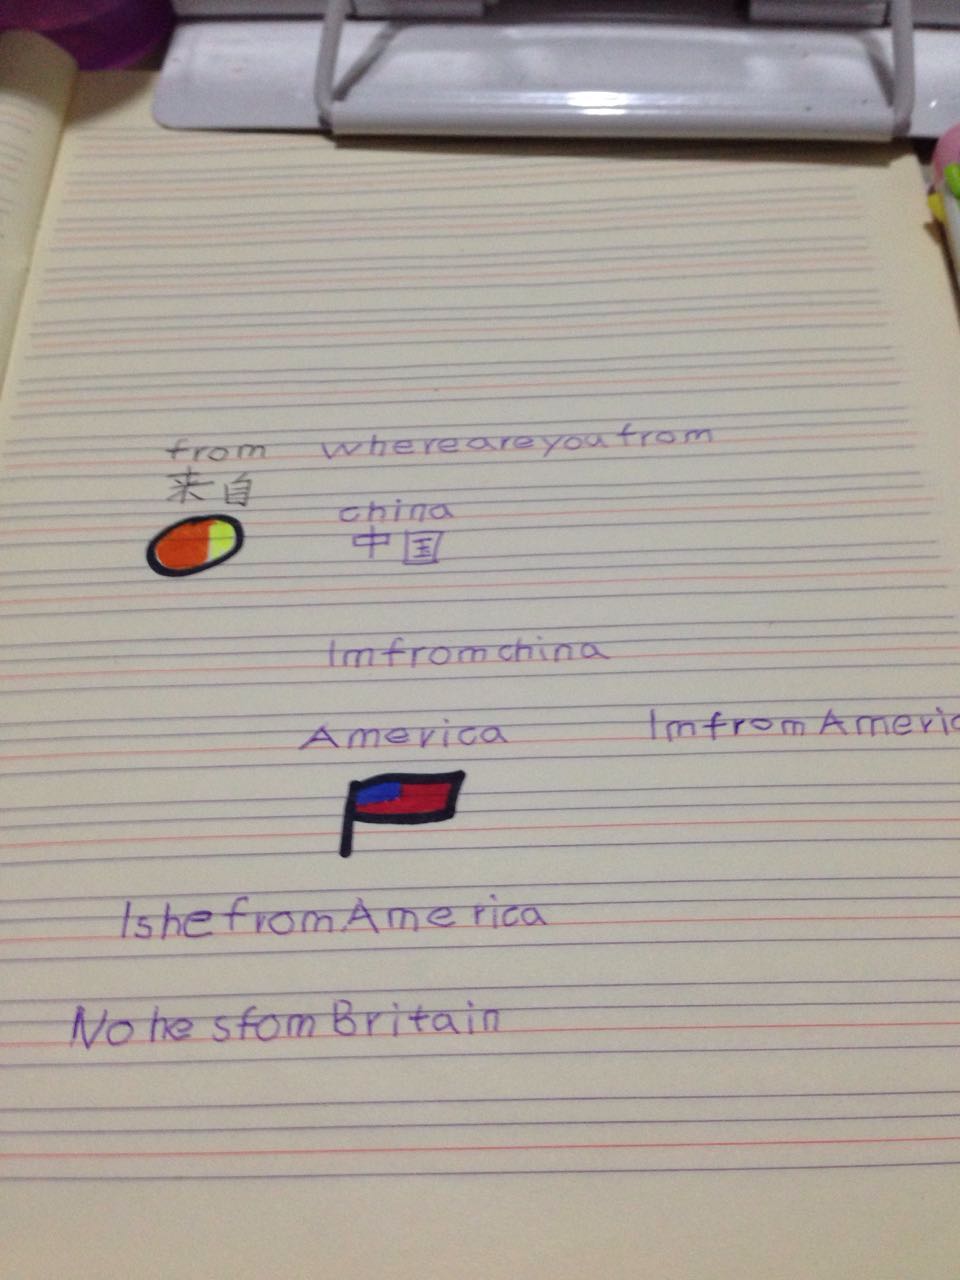 from whereareyoufrom
来自
china
中国
Imfromchina
America ImfromAmeric
IshefromAmerica
No he sfom Britain